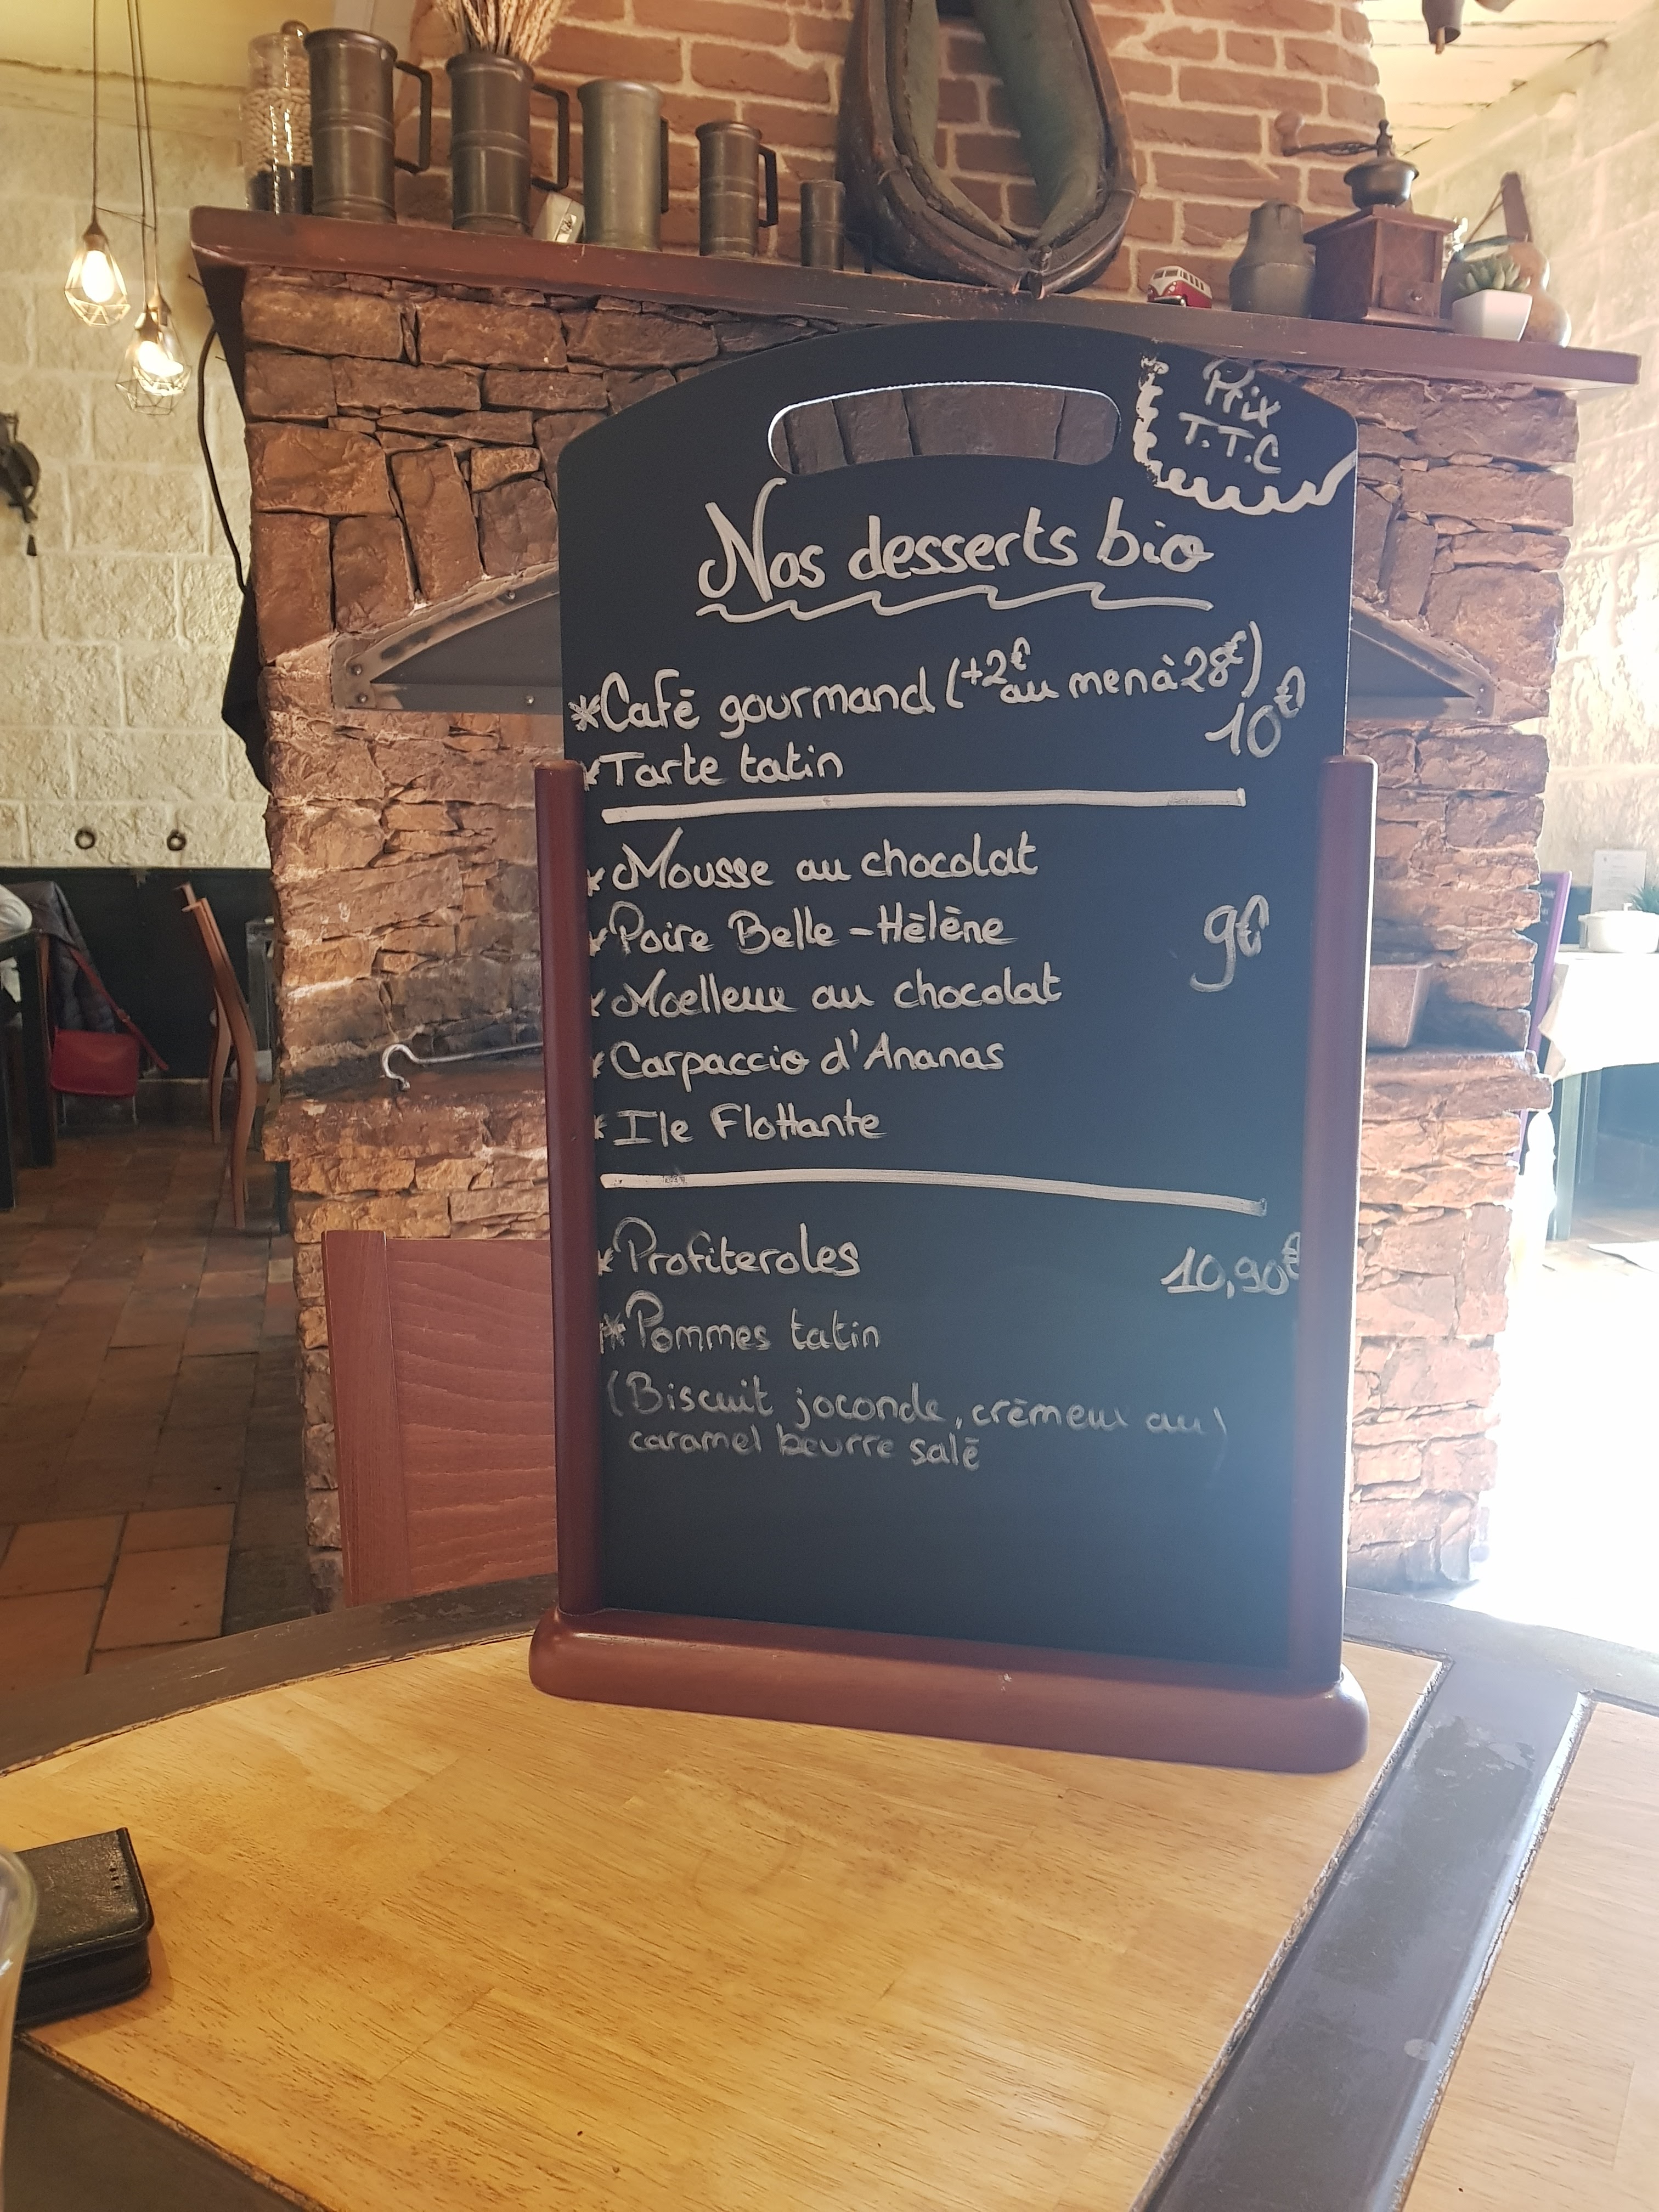 Prix
T.T.C
Nos desserts bio
*Café gourmand (+2€ au menà 28€)
10€
*Tarte tatin
*Mousse au chocolat
*Poire Belle-Hélène 9€
*Moelleux au chocolat
*Carpaccio d'Ananas
*Ile Flottante
*Profiteroles 10,90€
*Pommes tatin
(Biscuit joconde, crèmeux au)
caramel beurre salé